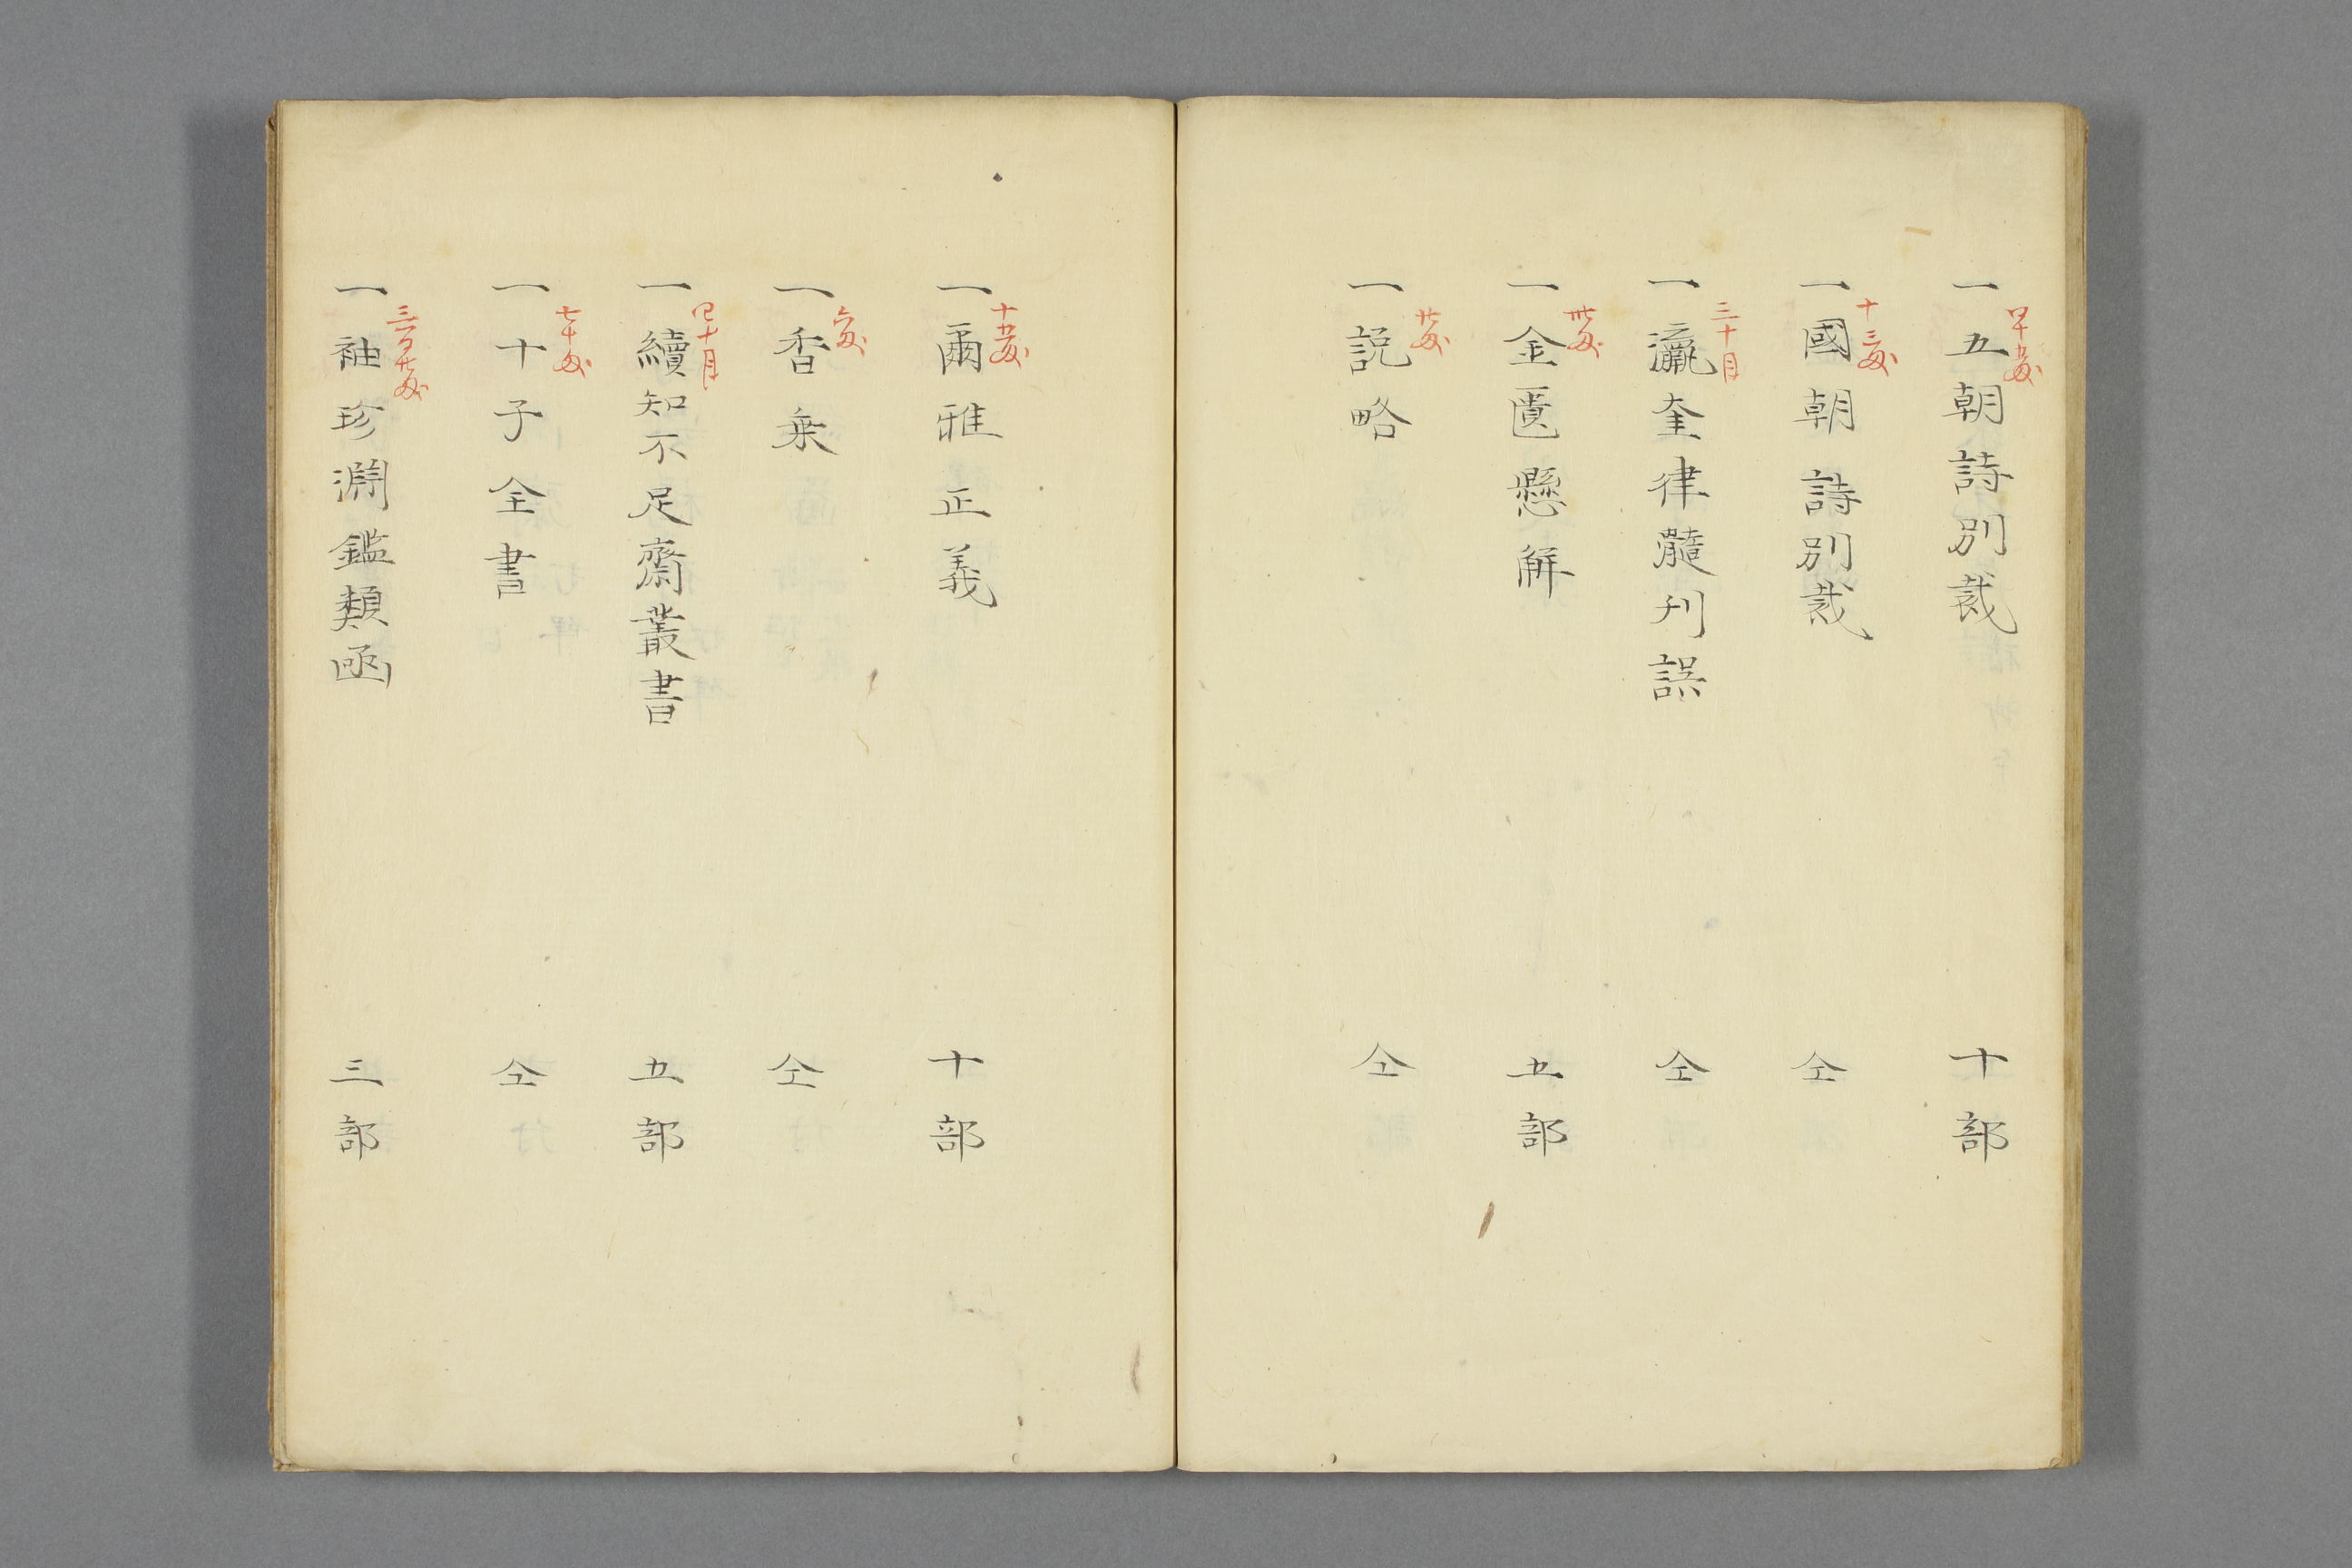 一五朝詩別裁 十部
十三匁
一國朝詩別裁 仝
三十目
一瀛奎律髓刊誤 仝
一金匱懸解 五部
一説略 仝
十五匁
一爾雅正義 十部
六匁
一香乗 仝
一續知不足齋叢書 五部
七十匁
一十子全書 仝
一袖珍淵鑑類凾 三部